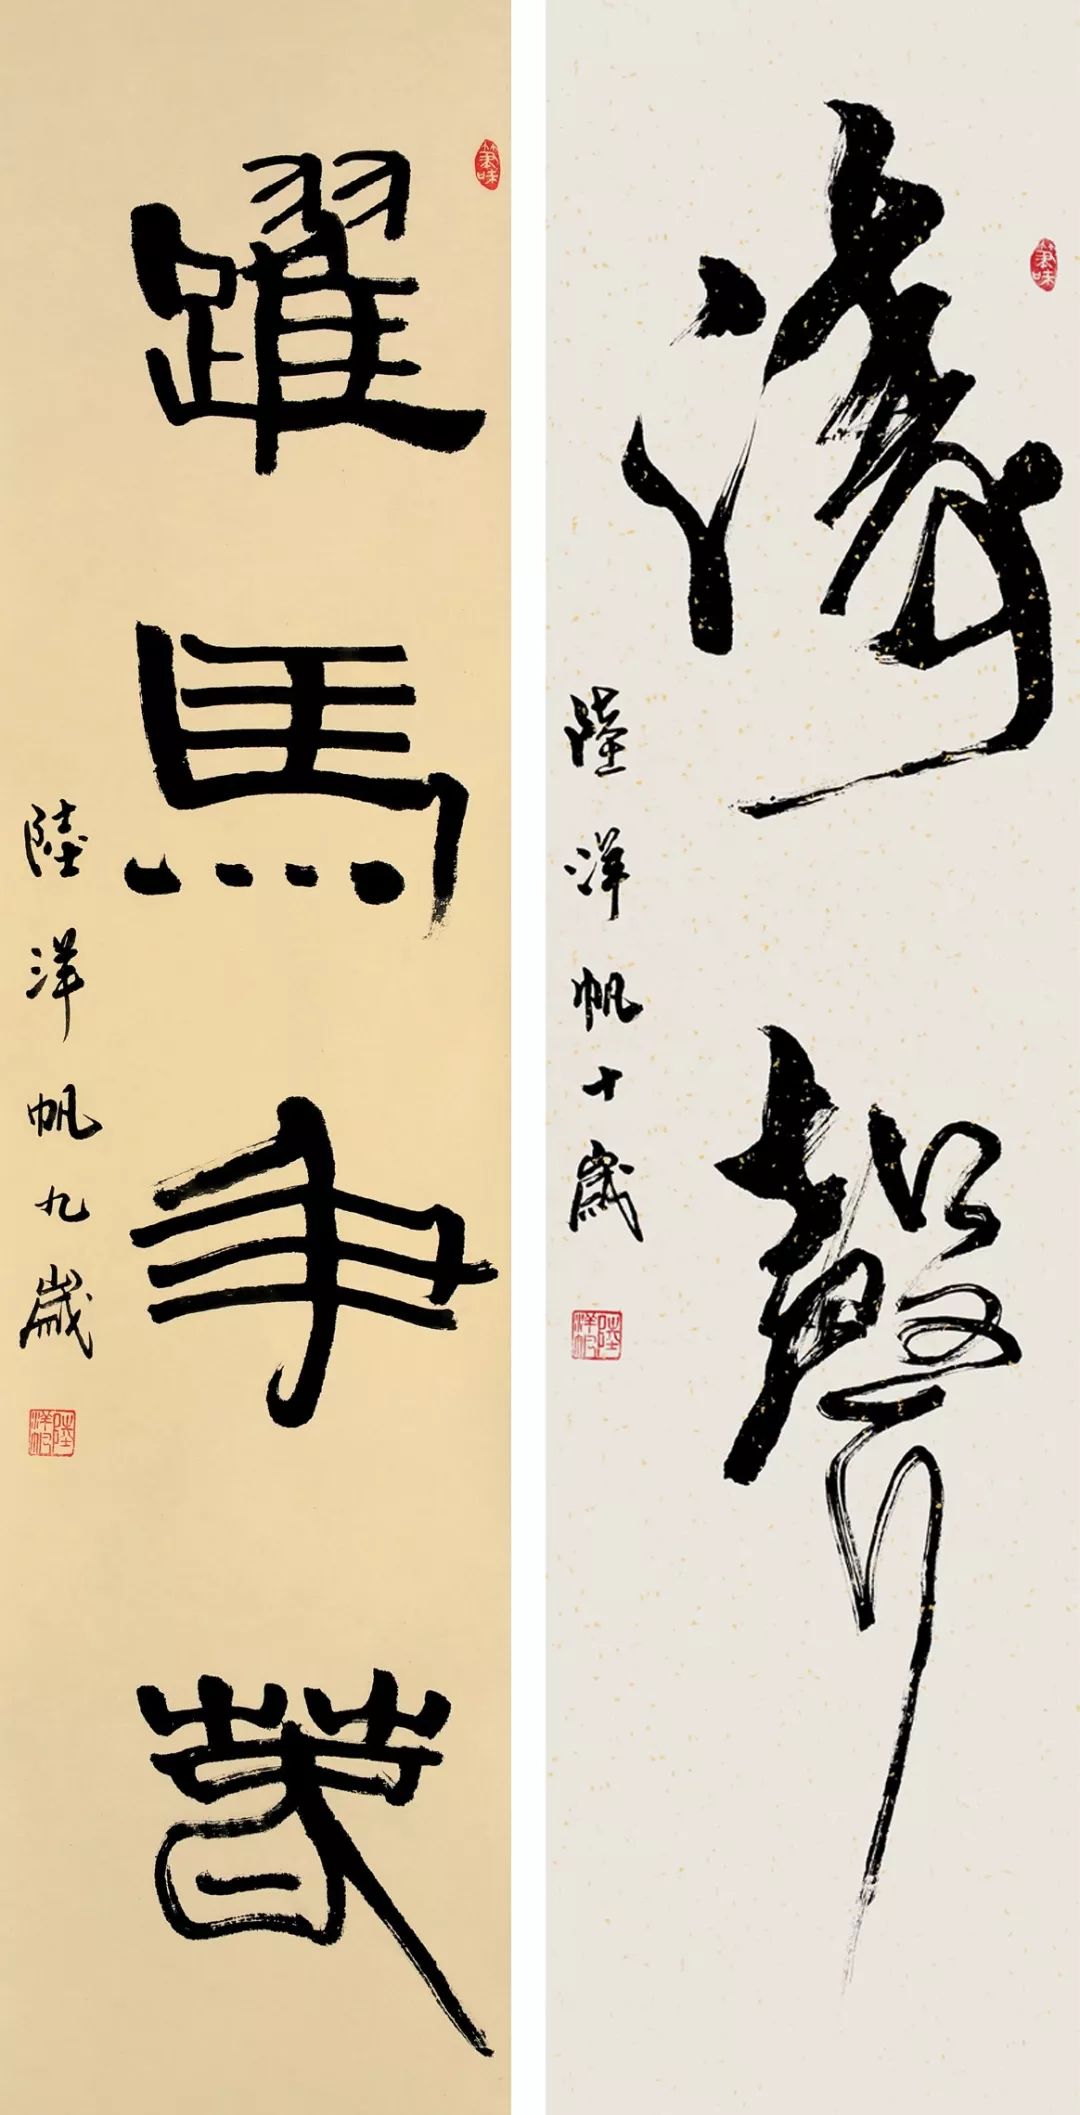 筆味
躍馬爭春
陸洋帆九歲
陸洋帆
筆味
濤聲
陸洋帆十歲
陸洋帆